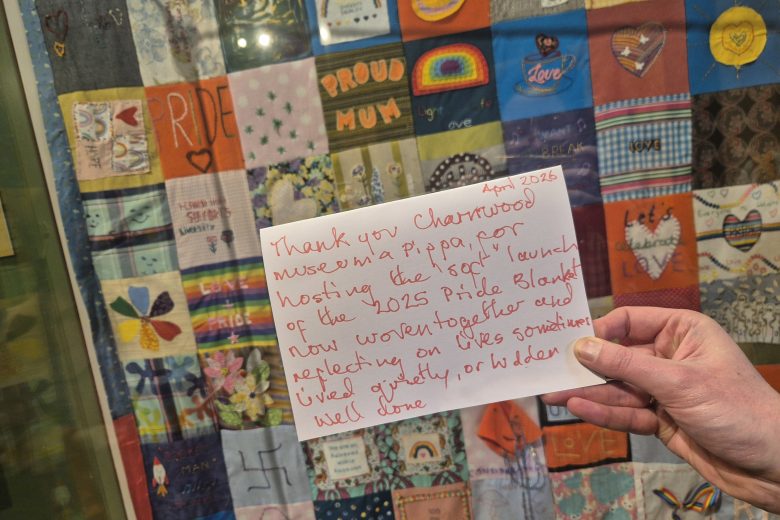 PROUD
MUM
PRIDE
Love
LOVE
Let's
celebrate
LOVE
LOVE
+
PRIDE
April 2026
Thank you Charnwood
museum & Pippa, for
hosting the "soft" launch
of the 2025 Pride Blanket
now woven together and
reflecting on lives sometimes
lived quietly, or hidden
well done
LOVE